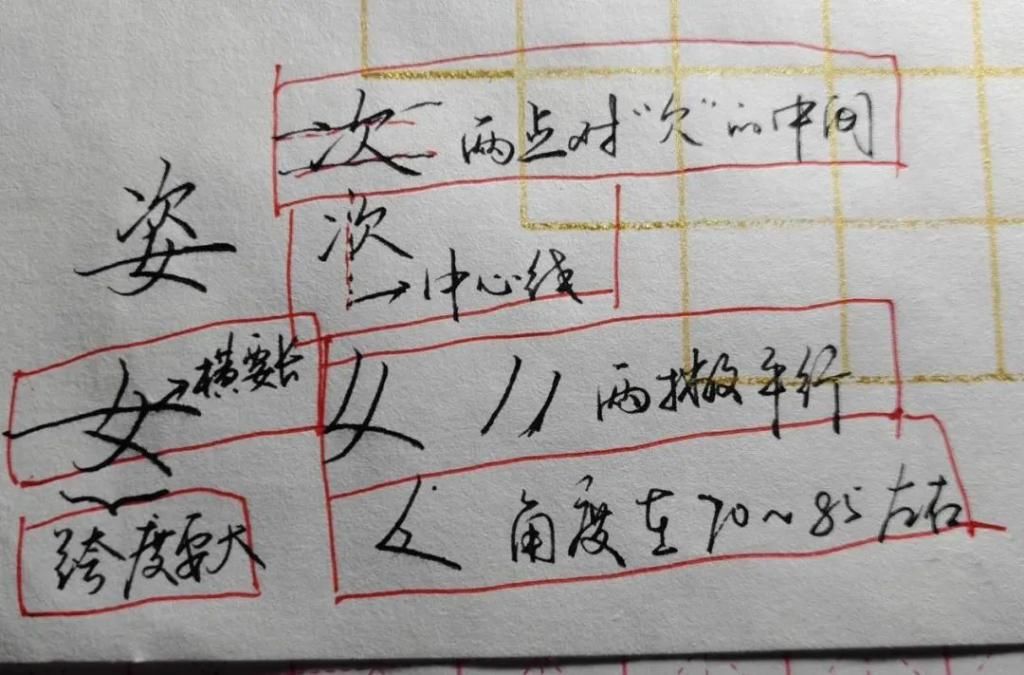 次 两点对"欠"的中间
姿
次
→中心线
女→横要长
女 丿丿 两撇平行
跨度要大
𡿨 角度在70~85左右